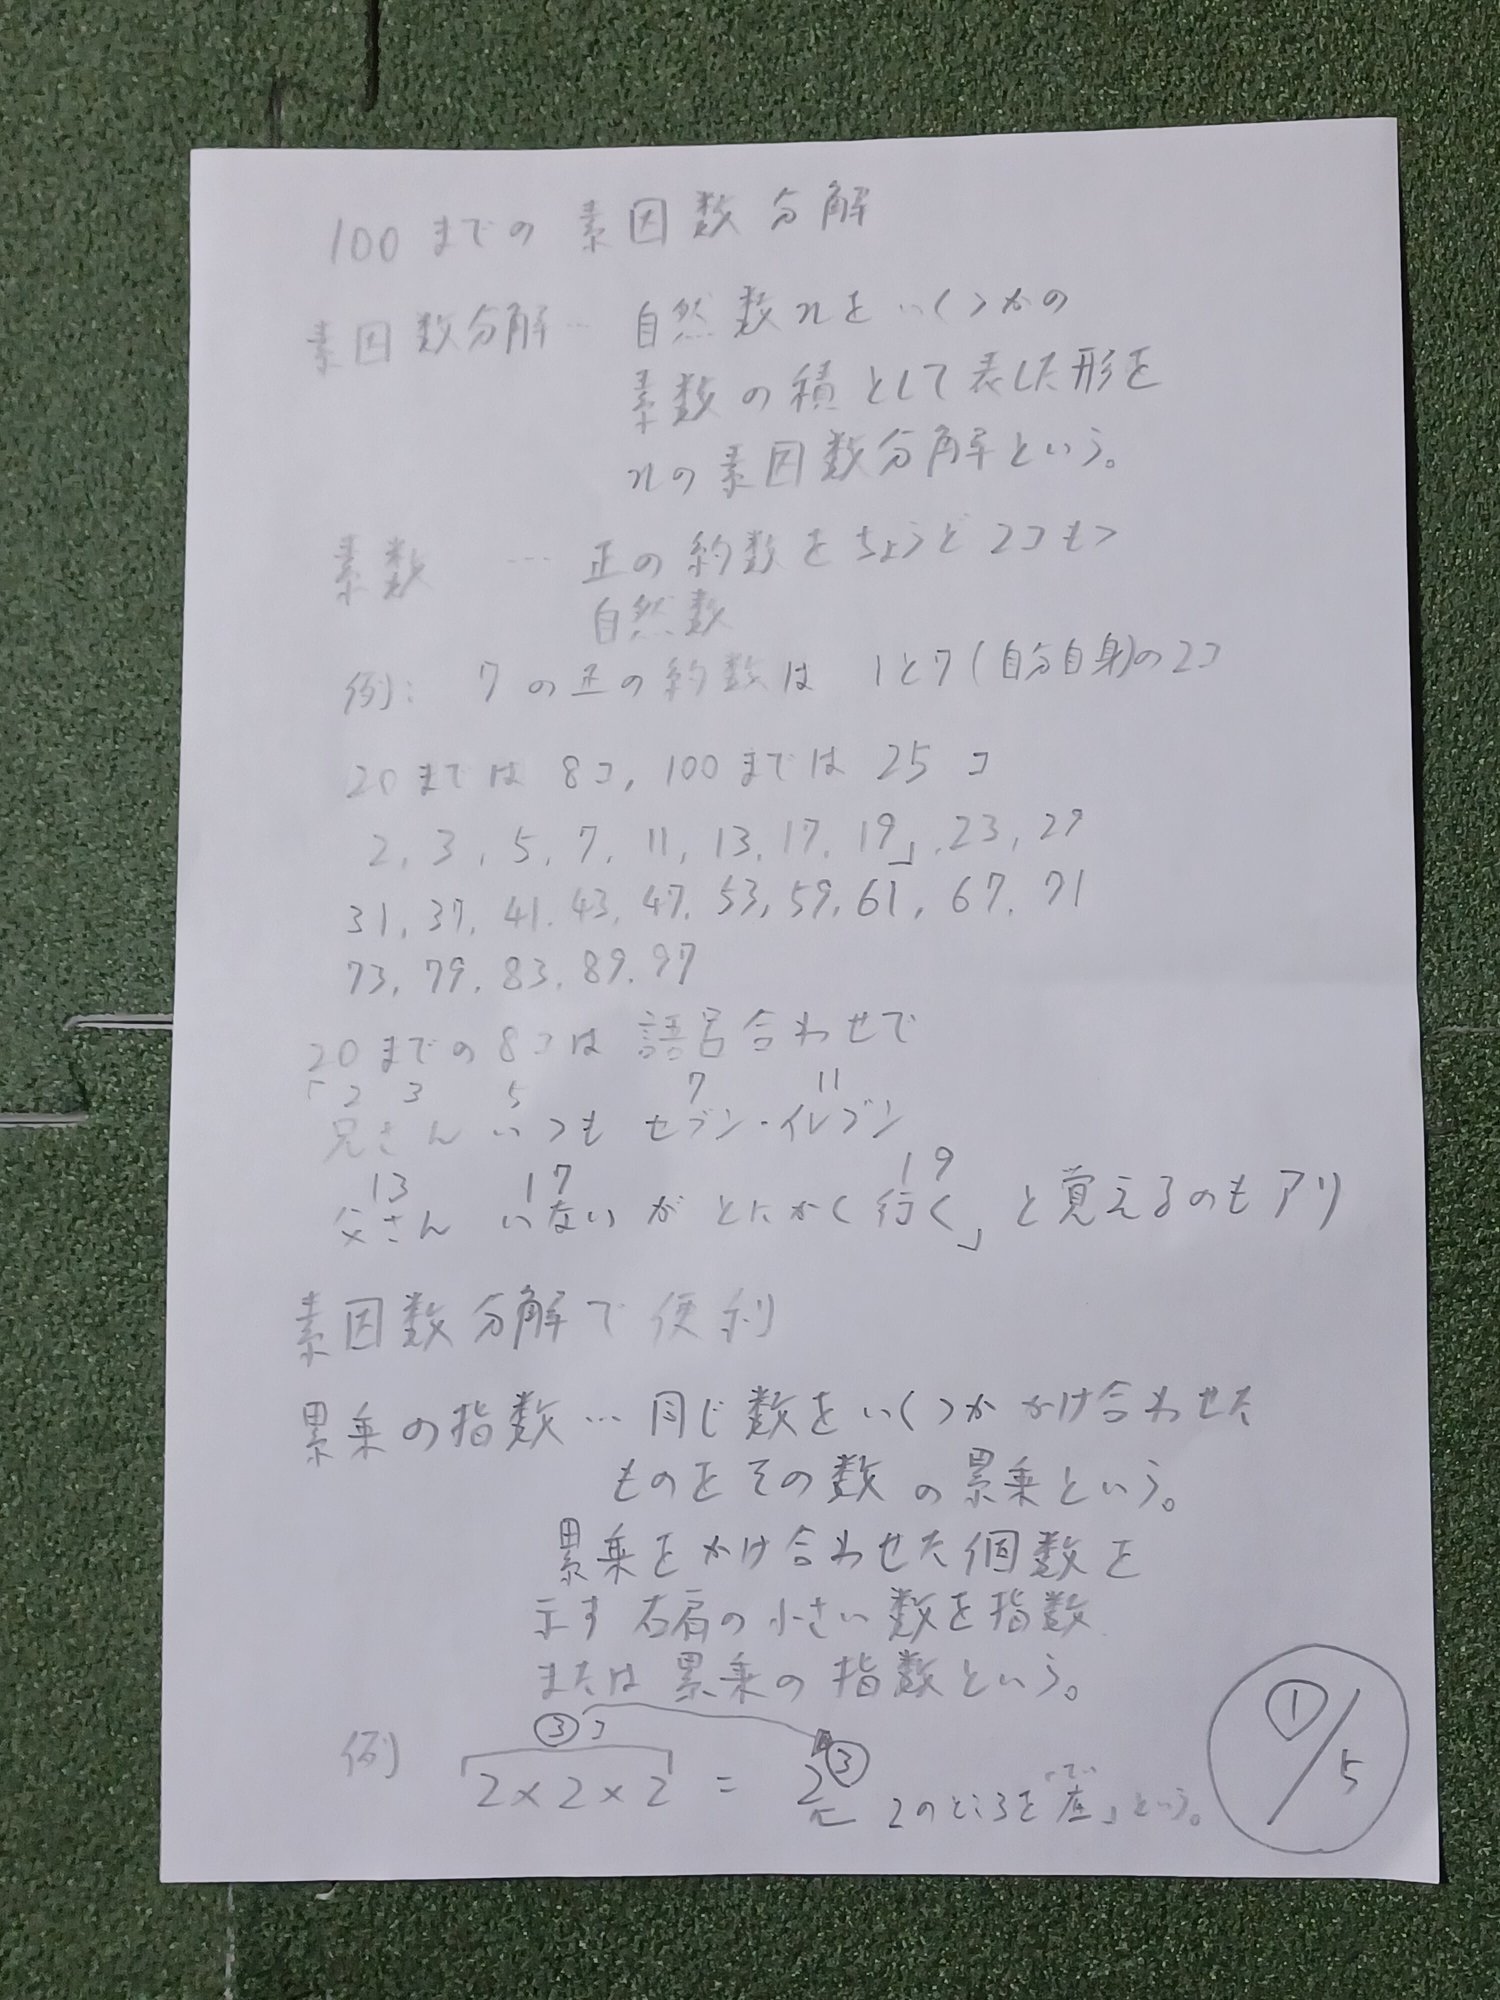 100までの素因数分解
素因数分解… 自然数nをいくつかの
素数の積として表した形を
nの素因数分解という。
素数 … 正の約数をちょうど2コもつ
自然数
例: 7の正の約数は 1と7(自分自身)の2コ
20までは 8コ, 100までは 25コ
2, 3, 5, 7, 11, 13, 17, 19」, 23, 29
31, 37, 41, 43, 47, 53, 59, 61, 67, 71
73, 79, 83, 89, 97
20までの8コは語呂合わせで
「2 3 5 7 11
兄さん いつも セブン・イレブン
13 17 19
父さん いないが とにかく行く」と覚えるのもアリ
素因数分解で便利
累乗の指数…同じ数をいくつかかけ合わせた
ものをその数の累乗という。
累乗をかけ合わせた個数を
示す右肩の小さい数を指数
または累乗の指数という。
③コ
例) 2×2×2 = 2③
てい
2のところを「底」という。
①/5